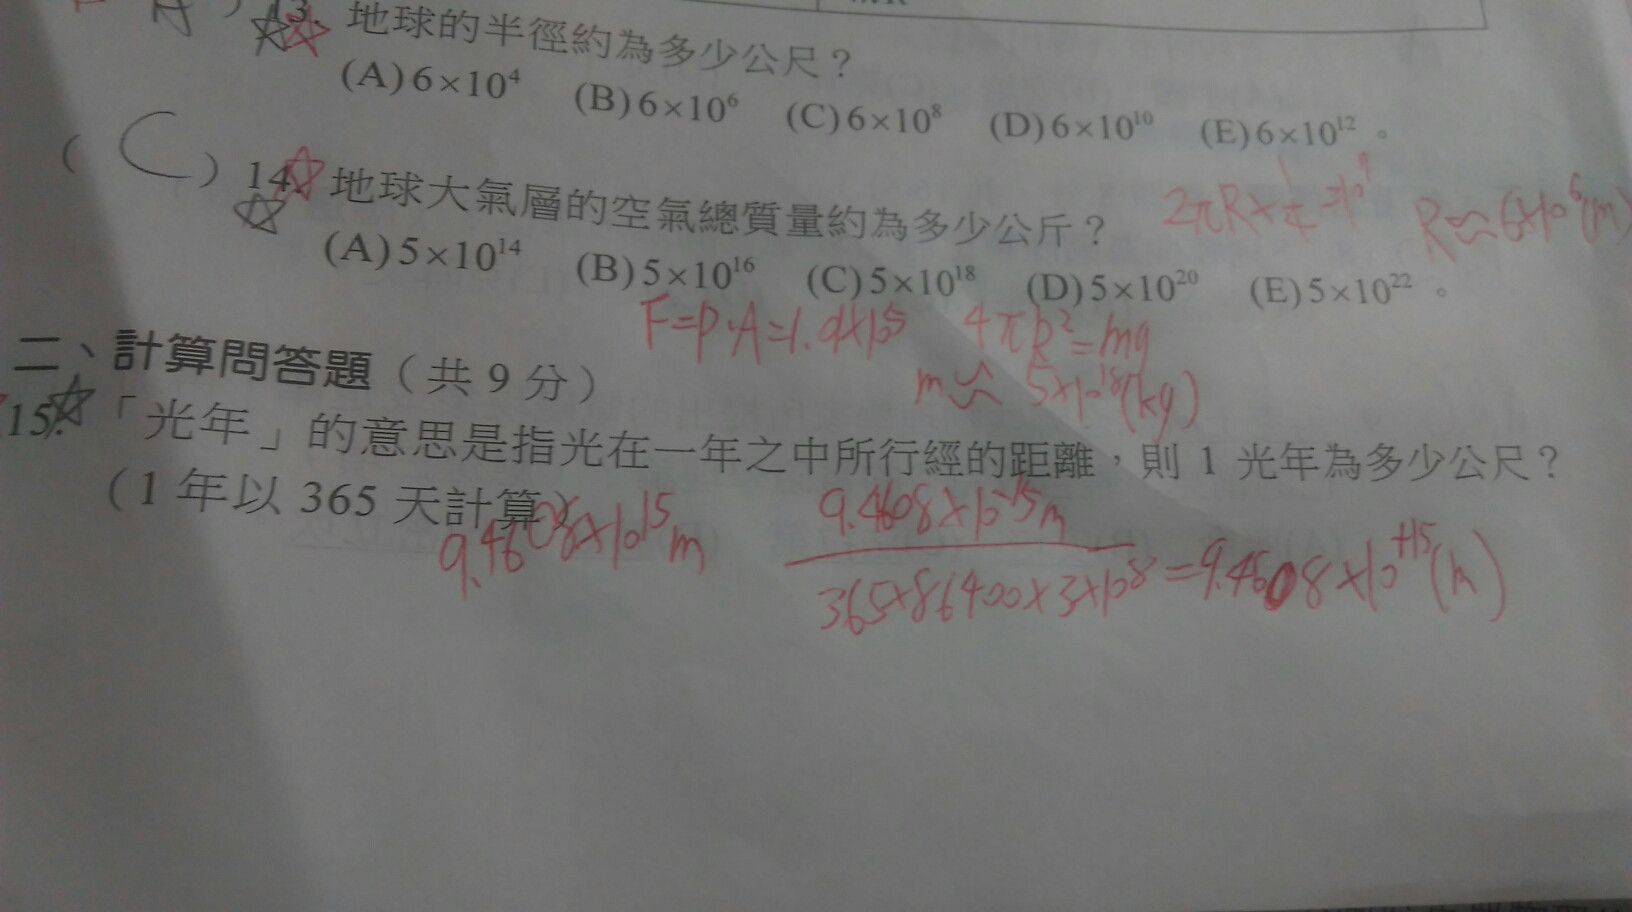 13. 地球的半徑約為多少公尺？
(A)6×10⁴ (B)6×10⁶ (C)6×10⁸ (D)6×10¹⁰ (E)6×10¹² 。
( C ) 14. 地球大氣層的空氣總質量約為多少公斤？
2πR×1/4=10⁷ R≈6×10⁶(m)
(A)5×10¹⁴ (B)5×10¹⁶ (C)5×10¹⁸ (D)5×10²⁰ (E)5×10²² 。
F=P·A=1.01×10⁵ 4πR²=mg
m≈5×10¹⁸(kg)
二、計算問答題（共 9 分）
15. 「光年」的意思是指光在一年之中所行經的距離，則 1 光年為多少公尺？
（1 年以 365 天計算）
9.4608×10¹⁵m
9.4608×10⁻¹⁵m
365×86400×3×10⁸=9.4608×10⁺¹⁵(m)